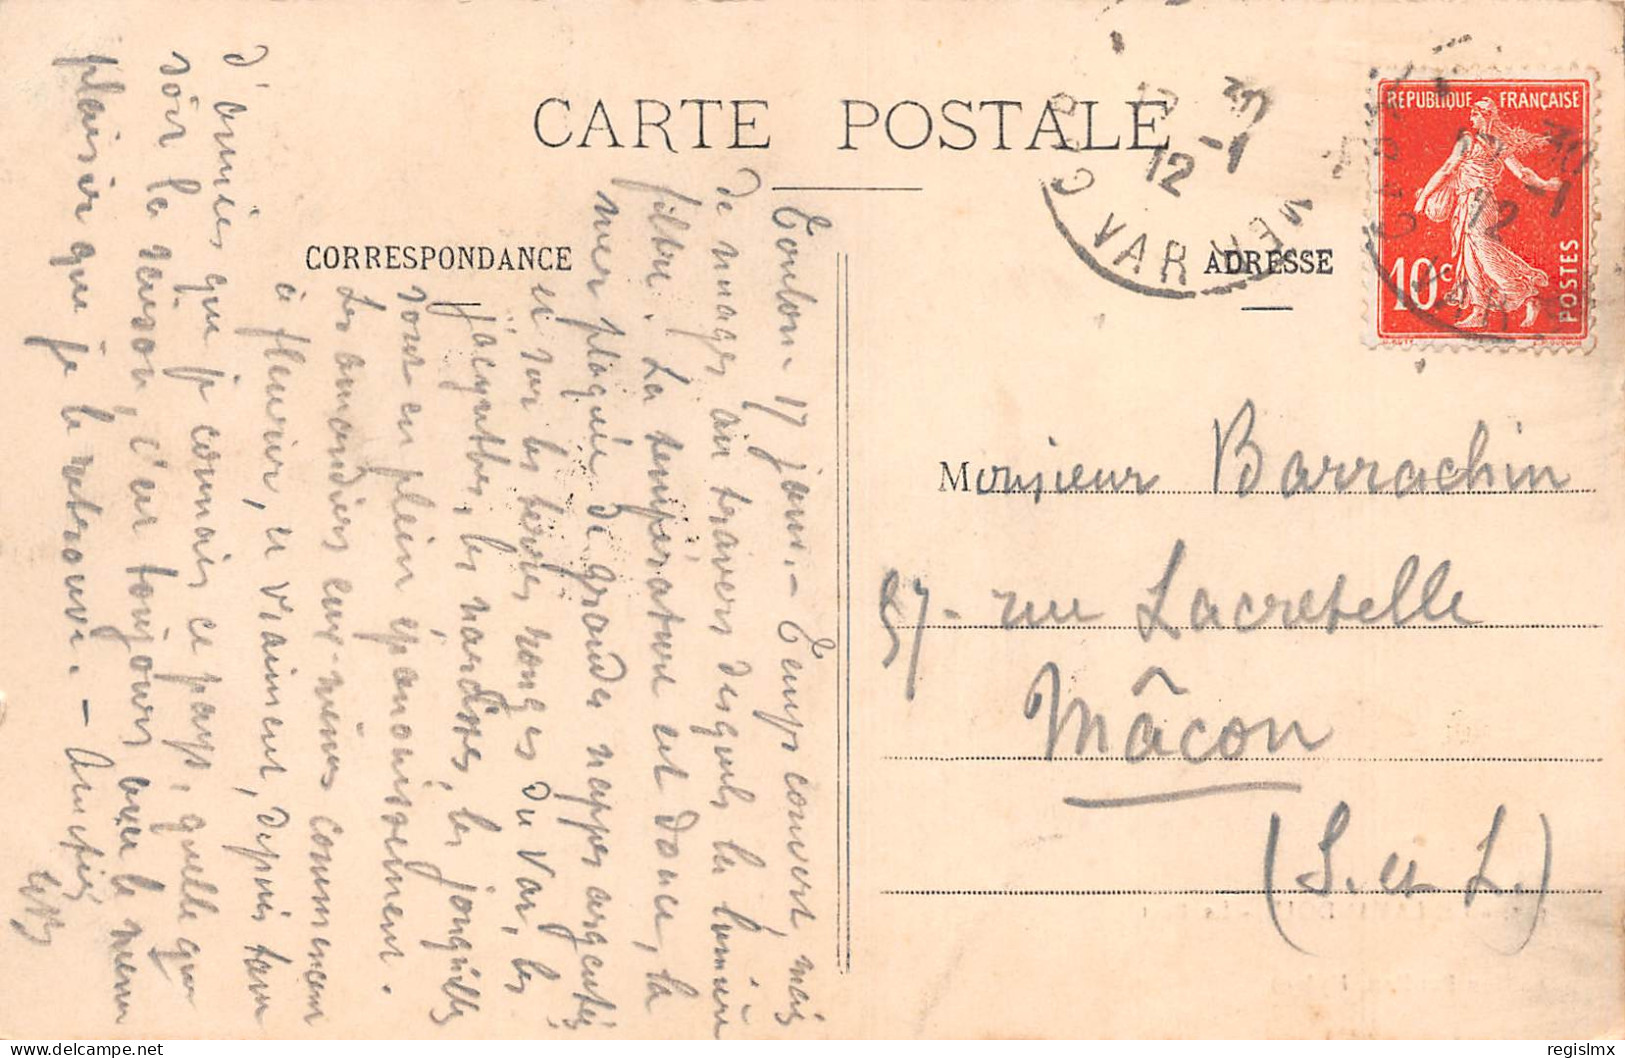 CARTE POSTALE
CORRESPONDANCE
ADRESSE
RÉPUBLIQUE FRANÇAISE
10c
POSTES
12 30
12 -1
VAR
Toulon 17 janv. - Temps couvert, mais
de nuages au travers desquels la lumière
filtre. La température est douce, la
mer plaquée de grandes nappes argentées
et sur les terres rouges du Var, les
jacynthes, les narcisses, les jonquilles
sont en plein épanouissement.
Les amandiers eux-mêmes commencent
à fleurir, et vraiment, depuis tant
d'années que je connais ce pays, quelle que
soit la saison, c'est toujours avec le même
plaisir que je le retrouve. - Amitiés
Monsieur Barrachin
97 - rue Lacretelle
Mâcon
(S. et L.)
© delcampe.net
regislmx